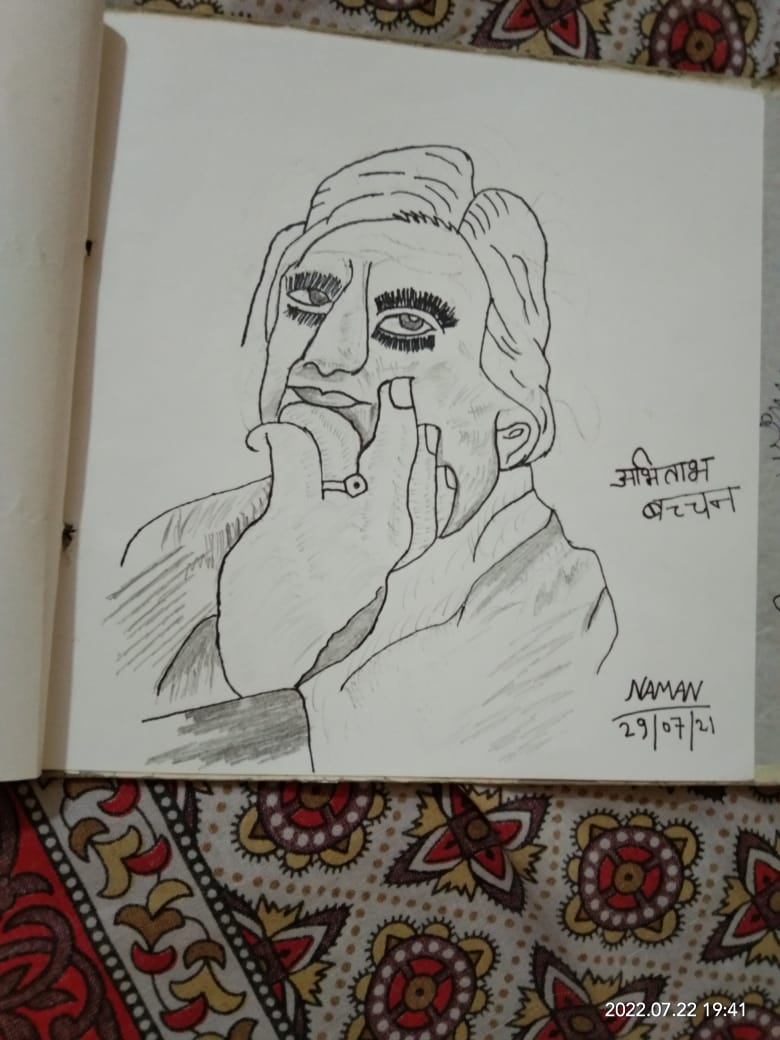 अभिताभ
बच्चन
NAMAN
29/07/21
2022.07.22 19:41